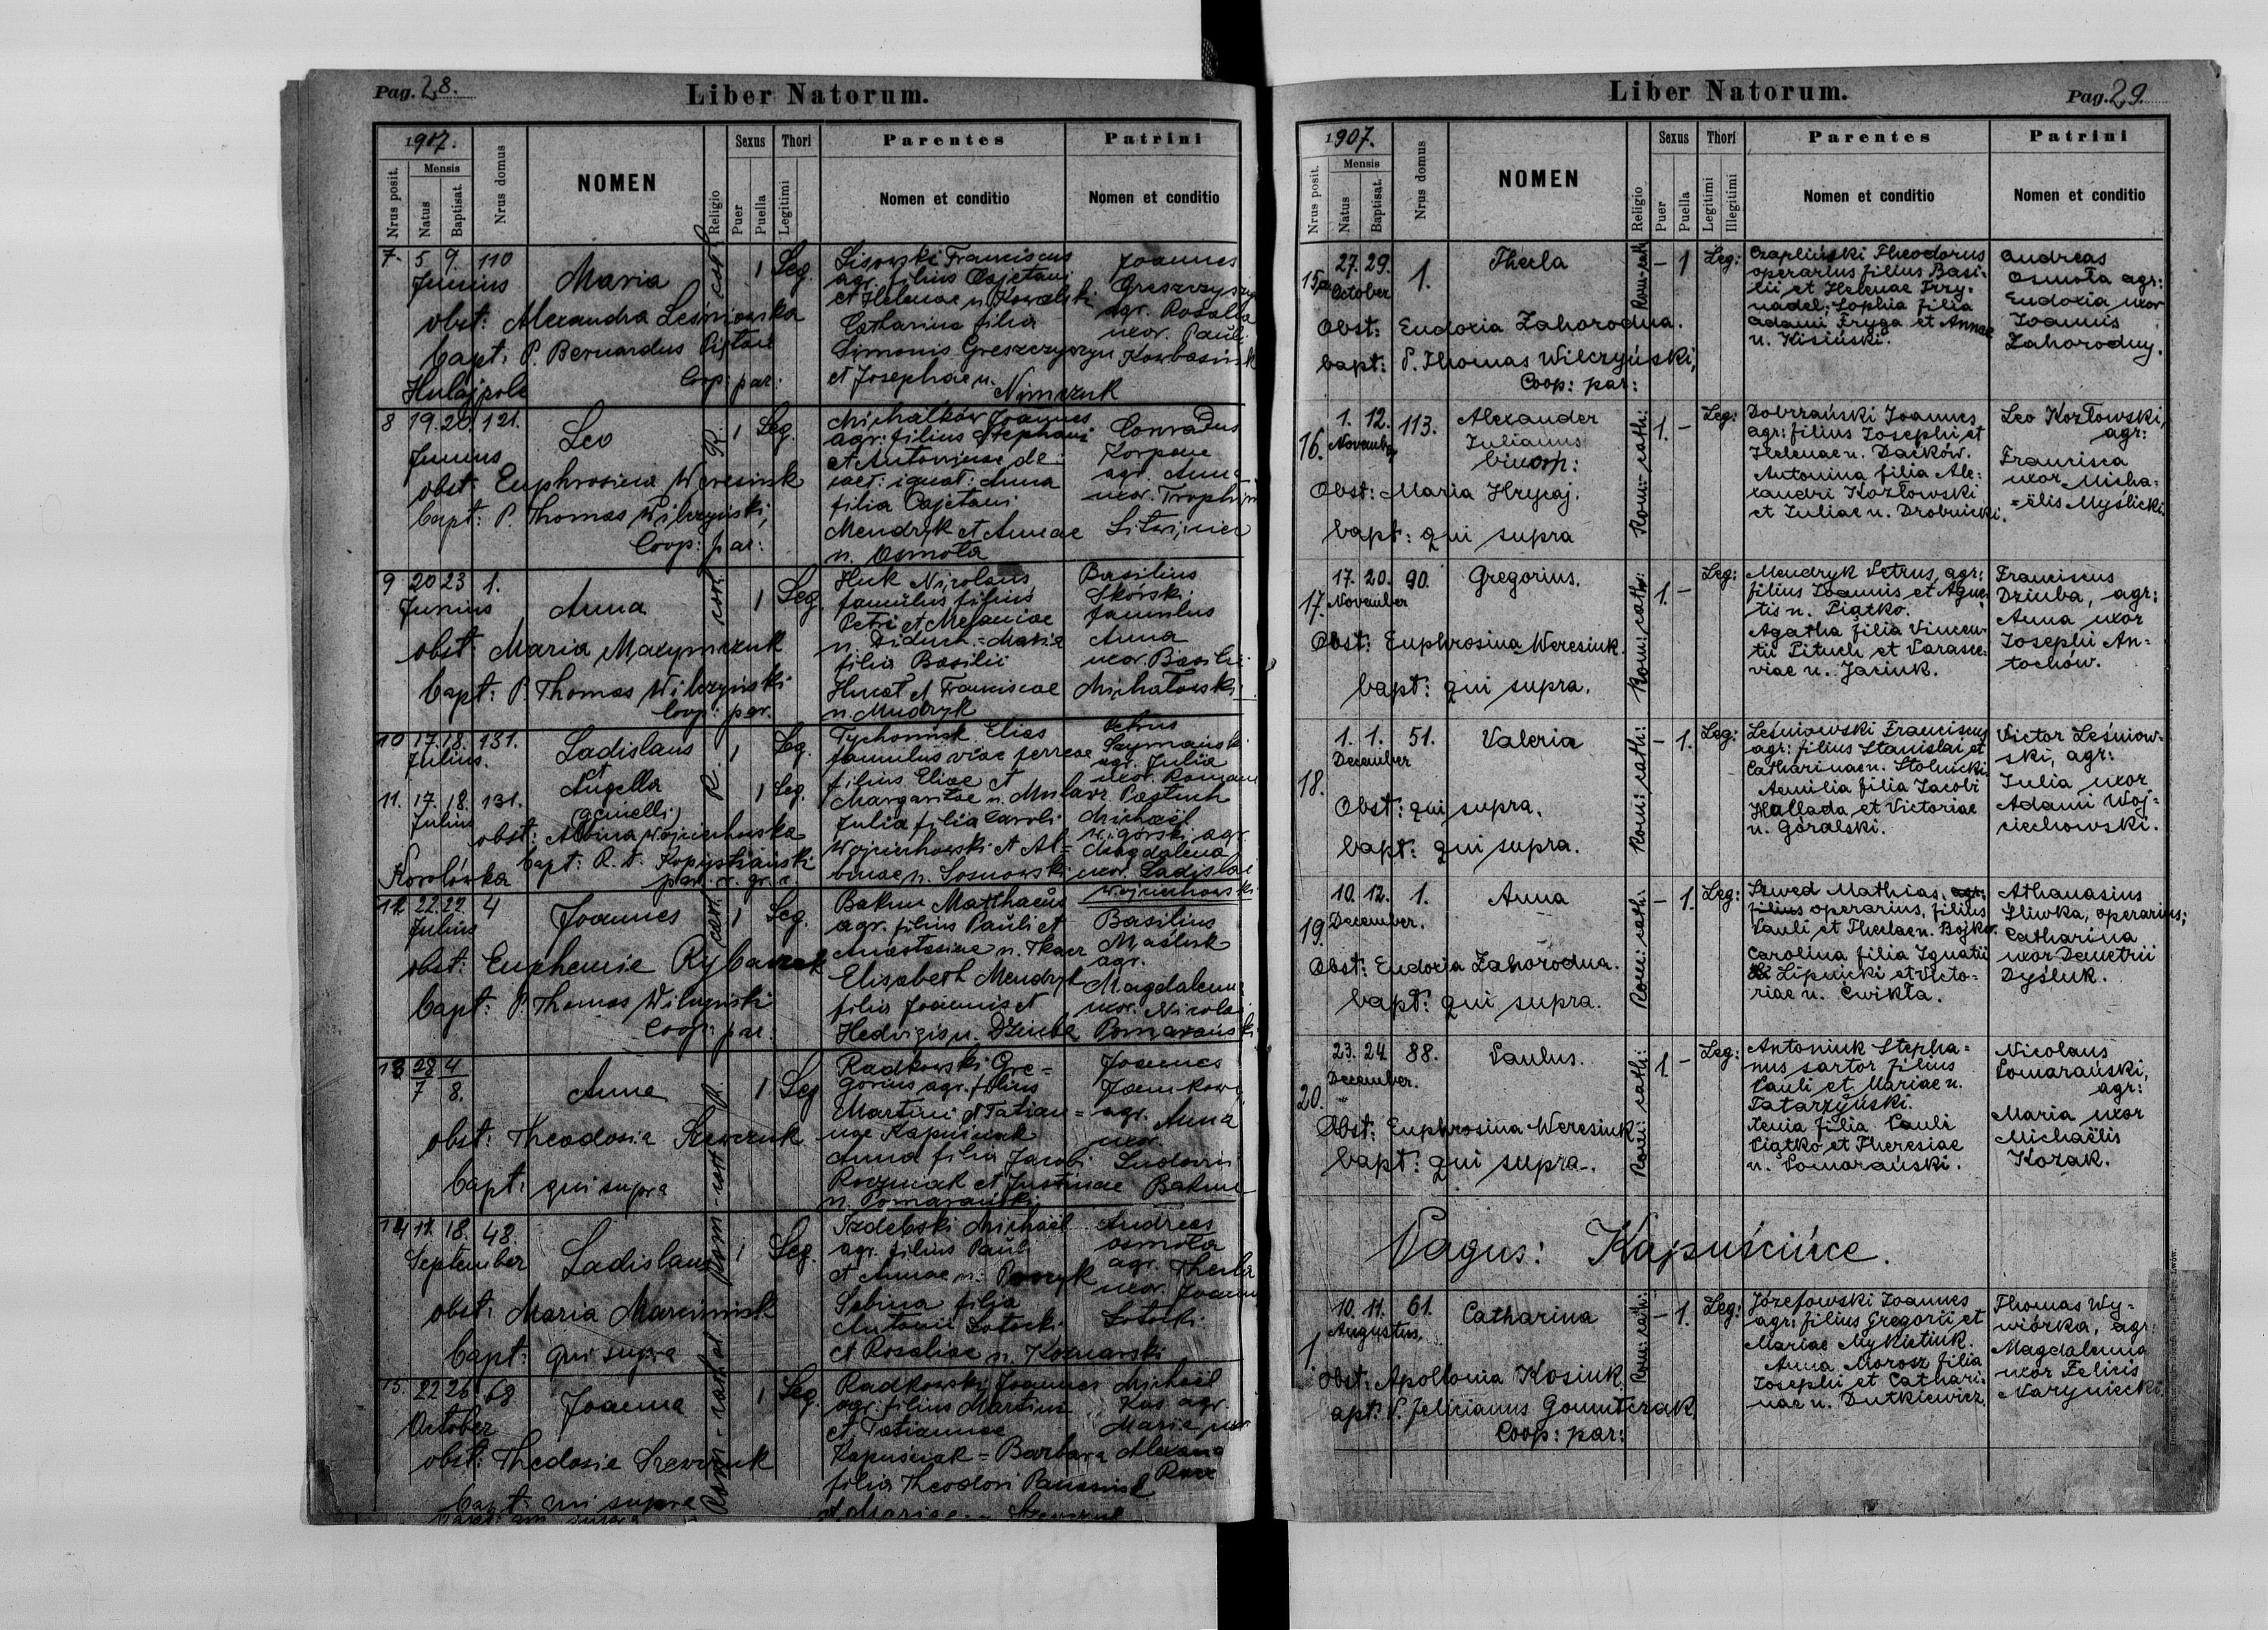 Pag. 28.
Liber Natorum.
1907.
Nrus posit.
Mensis
Natus
Baptisat.
Nrus domus
NOMEN
Religio
Sexus
Puer
Puella
Thori
Legitimi
Parentes
Nomen et conditio
Patrini
Nomen et conditio
7. 5 9. 110
Junius
Maria
1 Leg.
obst: Alexandra Leśniowska
bapt: P. Bernardus
Coop: par:
Hulajpole
Lisowski Franciscus
agr. filius Cajetani
et Helenae n. Kowalski
Catharina filia
Simonis Greszczyszyn
et Josephae n.
Nimczuk
Joannes
Greszczyszyn
agr. Rosalia
uxor. Pauli
8 19. 20. 121.
Junius
Leo
R. 1 Leg.
obst: Euphrosina Weresiuk
bapt: P. Thomas Wilczyński,
Coop: par:
Michałków Joannes
agr: filius Stephani
et Antoninae de
caet: ignot: Anna
filia Cajetani
Mendryk et Annae
n. Osmoła
Conradus
Korpane
agr. Anna
uxor. Trophim
9 20 23 1.
Junius
Anna
1 Leg.
obst: Maria Maxymczuk
bapt: P. Thomas Wilczyński
Coop: par.
Huk Nicolaus
famulus, filius
Petri et Melaniae
n. Diduch = Maria
filia Basilii
Hucał et Franciscae
n. Mudryk
Basilius
Skórski
famulus
Anna
uxor. Basilii
Michałowski
10 17. 18. 131.
Julius.
Ladislaus
et
R. 1 Leg.
11. 17. 18. 131.
Julius
Angella
(gemelli)
1 Leg.
obst: Albina Wojciechowska
bapt: R. d. Kopystiański
par. r. gr. c.
Korolówka
Tychoniuk Elias
famulus viae ferreae
filius Eliae et
Margaritae n.
Julia filia Caroli
Wojciechowski et Al=
binae n. Sosnowski
Petrus
Szymański
agr. Julia
uxor. Romani
Pastuch
Michaël
agr.
Magdalena
uxor. Ladislai
Wojciechowski
12 22. 22. 4
Julius
Joannes
1 Leg.
obst: Euphemia Rybaczek
bapt: P. Thomas Wilczyński
Coop: par:
Bakun Matthaeus
agr. filius Pauli et
Anastasiae n. Tkacz
Elisabeth Mendryk
filia Joannis et
Hedvigis n. Dziuba
Basilius
Maśluk
agr.
Magdalena
uxor. Nicolai
Pomarański
13 28 4
7 8.
Anna
R. 1 Leg
obst: Theodosia Szewczuk
bapt: qui supra
Radkowski Gre=
gorius agr. filius
Martini et Tatian=
nae Kapuściak
Anna filia Jacobi
Roczniak et Justinae
n. Pomarański
Joannes
agr. Anna
uxor.
Ludovici
Bakun
14 11. 18. 48.
September
Ladislaus
1 Leg.
obst: Maria Marciniuk
bapt: qui supra
Izdebski Michaël
agr. filius Pauli
et Annae n.
Sabina filia
Antonii Łotocki
et Rosaliae n. Koznarski
Andreas
Osmoła
agr. Thecla
uxor. Joannis
Łotocki
15. 22 26 68
October
Joanna
1 Leg.
obst: Thedosia Szewczuk
bapt: qui supra
Rom - cathol
Radkowski Joannes
agr. filius Martini
et Tatiannae
Kapuściak = Barbara
filia Theodori
et Mariae n. Szewczuk
Michaël
Kos agr.
Maria uxor
Liber Natorum.
Pag. 29.
1907.
Nrus posit.
Mensis
Natus
Baptisat.
Nrus domus
NOMEN
Religio
Sexus
Puer
Puella
Thori
Legitimi
Illegitimi
Parentes
Nomen et conditio
Patrini
Nomen et conditio
27. 29.
15/a October
1.
Thecla
Rom: cath:
– 1 Leg:
Obst: Eudoxia Zahorodna.
bapt: P. Thomas Wilczyński,
Coop: par:
Czapliński Theodorus
operarius filius Basi-
lii et Helenae Przy-
nadel; Sophia filia
Adami Fryga et Annae
n. Kisiński.
Andreas
Osmoła agr:
Eudoxia uxor
Joannis
Zahorodny.
1. 12. 113.
16. November
Alexander
Julianus
binom:
Rom: cath:
1. – Leg:
Obst: Maria Hrycaj.
bapt: qui supra
Dobrzański Joannes
agr: filius Josephi et
Helenae n. Daćków.
Antonina filia Ale:
xandri Kozłowski
et Juliae n. Drobnicki.
Leo Kozłowski,
agr:
Francisca
uxor Micha=
=ëlis Myślicki.
17. 20. 90.
17. November
Gregorius.
Rom: cath:
1. – Leg:
Obst: Euphrosina Weresiuk.
bapt: qui supra.
Mendryk Petrus, agr:
filius Joannis et Agne-
tis n. Piątko.
Agatha filia Vincen-
tii Pituch et Parasce-
viae n. Jasiuk.
Franciscus
Dziuba, agr:
Anna uxor
Josephi An-
tochów.
1. 1. 51.
December
18.
Valeria
Rom: cath:
– 1. Leg:
Obst: qui supra.
bapt: qui supra.
Leśniowski Franciscus
agr: filius Stanislai et
Catharinae n. Stolnicki.
Aemilia filia Jacobi
Hallada et Victoriae
n. Góralski.
Victor Leśniow-
ski, agr:
Julia uxor
Adami Woj-
ciechowski.
10. 12. 1.
19. December.
Anna
Rom: cath:
– 1. Leg:
Obst: Eudoxia Zahorodna.
bapt: qui supra.
Szwed Mathias, agr:
filius operarius, filius
Pauli et Theclae n. Bojko.
Carolina filia Ignatii
Lipnicki et Victo-
riae n. Ćwikła.
Athanasius
Śliwka, operarius;
Catharina
uxor Demetrii
Dyśluk.
23. 24. 88.
December.
20.
Paulus.
Rom: cath:
1 – Leg:
Obst: Euphrosina Weresiuk
bapt: qui supra.
Antoniuk Stepha=
nus sartor filius
Pauli et Mariae n.
Tatarzyński.
Xenia filia Pauli
Piątko et Theresiae
n. Pomarański.
Nicolaus
Pomarański,
agr:
Maria uxor
Michaëlis
Kozak.
Vagus: Kapuścińce.
10. 11. 61.
Augustus.
1.
Catharina
Rom: cath:
– 1. Leg:
Obst: Apollonia Kosiuk.
apt: P. Felicianus
Coop: par:
Józefowski Joannes
agr: filius Gregorii et
Mariae Mykietiuk.
Anna Morosz filia
Josephi et Cathari-
nae n. Dutkiewicz.
Thomas Wy-
wiórka, agr:
Magdalena
uxor Felicis
Naryniecki.